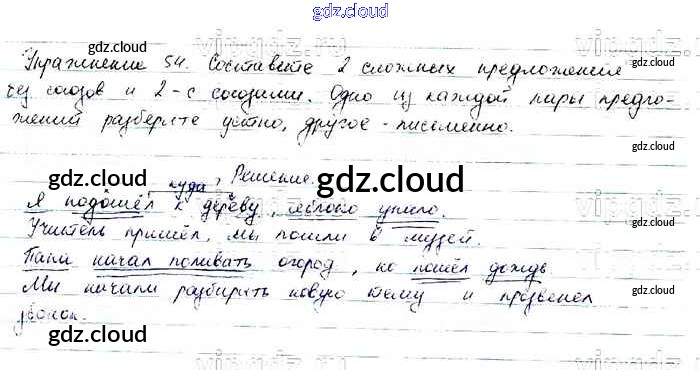 gdz.cloud
gdz.cloud gdz.cloud
Упражнение 54. Составьте 2 сложных предложения
без союзов и 2-с союзами. Одно из каждой пары предло-
жений разберите устно, другое - письменно.
gdz.cloud gdz.cloud
куда
Решение.
gdz.cloud gdz.cloud gdz.cloud
Я подошёл к дереву, яблоко упало.
Учитель пришёл, мы пошли в музей.
Папа начал поливать огород, но пошёл дождь
Мы начали разбирать новую тему и прозвенел
звонок.
gdz.cloud gdz.cloud
gdz.cloud